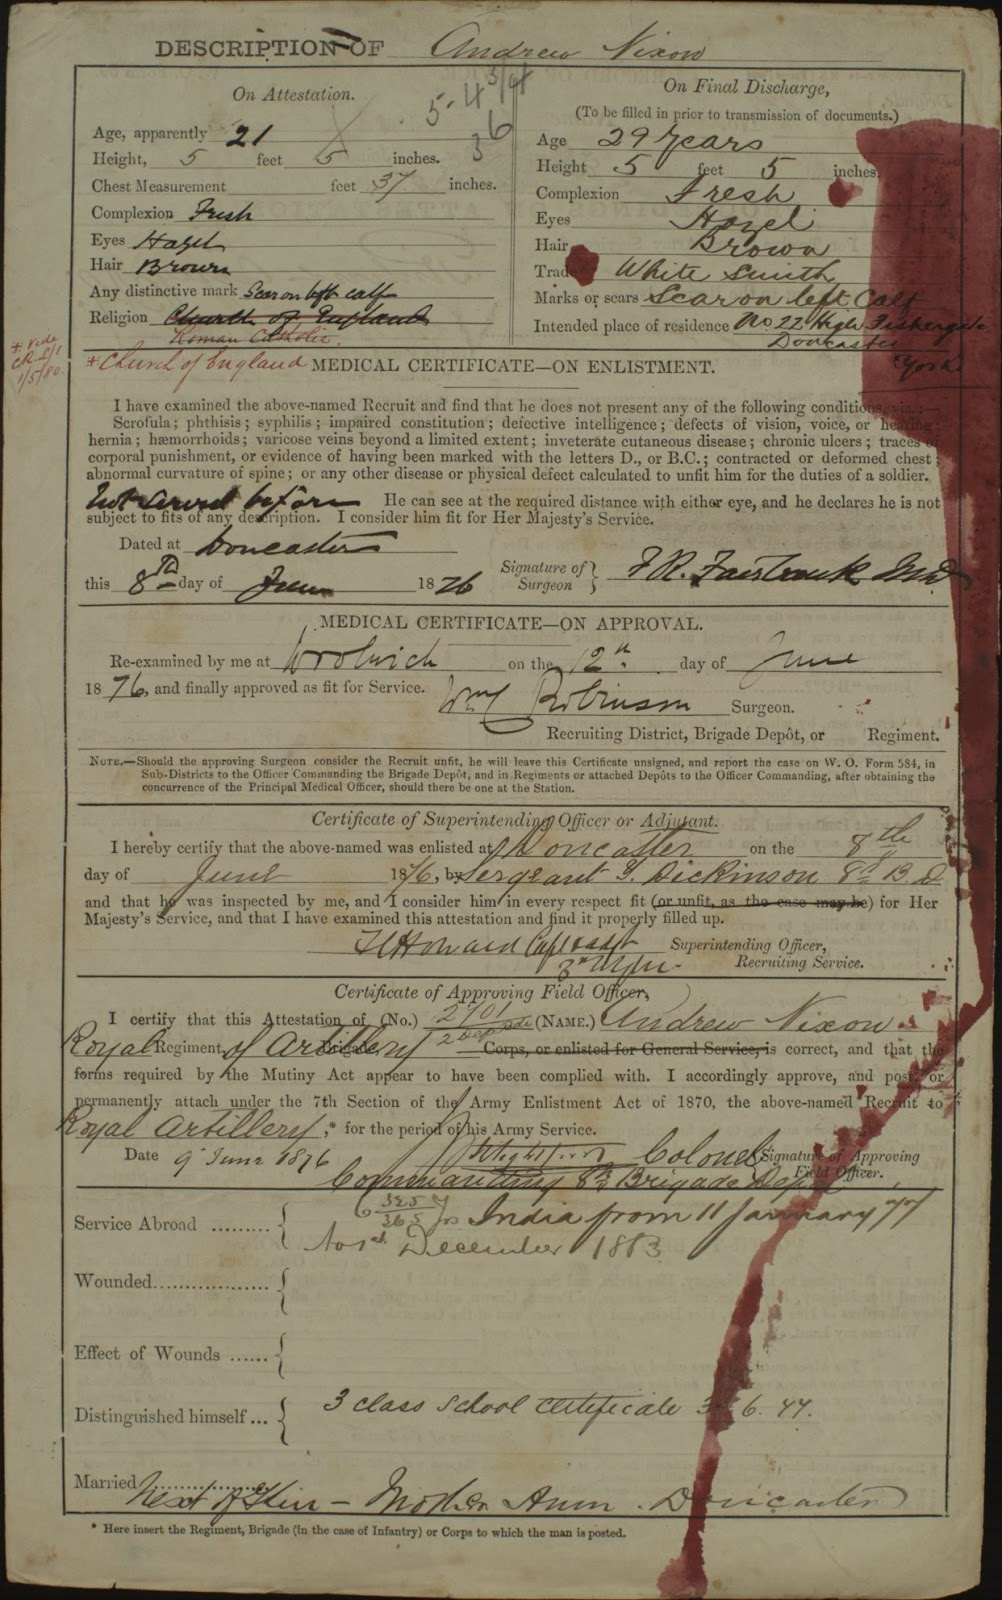 DESCRIPTION OF Andrew Nixon
On Attestation.
5-4 3/4
36
Age, apparently 21
Height, 5 feet 5 inches.
Chest Measurement feet 37 inches.
Complexion Fresh
Eyes Hazel
Hair Brown
Any distinctive mark Scar on left calf
Religion Church of England
Roman Catholic.
+ Church of England
+ vide
1/5/80.
On Final Discharge,
(To be filled in prior to transmission of documents.)
Age 29 years
Height 5 feet 5 inches.
Complexion Fresh
Eyes Hazel
Hair Brown
Trade White Smith
Marks or scars Scar on left Calf
Intended place of residence No 22 High Fishergate
Doncaster
York
MEDICAL CERTIFICATE—ON ENLISTMENT.
I have examined the above-named Recruit and find that he does not present any of the following conditions, viz.:—
Scrofula; phthisis; syphilis; impaired constitution; defective intelligence; defects of vision, voice, or hearing;
hernia; hæmorrhoids; varicose veins beyond a limited extent; inveterate cutaneous disease; chronic ulcers; traces of
corporal punishment, or evidence of having been marked with the letters D., or B.C.; contracted or deformed chest;
abnormal curvature of spine; or any other disease or physical defect calculated to unfit him for the duties of a soldier.
Not served before He can see at the required distance with either eye, and he declares he is not
subject to fits of any description. I consider him fit for Her Majesty's Service.
Dated at Doncaster
this 8th day of June 1876
Signature of Surgeon } F. R. Fairbank MD
MEDICAL CERTIFICATE—ON APPROVAL.
Re-examined by me at Woolwich on the 12th day of June
1876, and finally approved as fit for Service. Wm Robinson Surgeon.
Recruiting District, Brigade Depôt, or Regiment.
NOTE.—Should the approving Surgeon consider the Recruit unfit, he will leave this Certificate unsigned, and report the case on W. O. Form 584, in
Sub-Districts to the Officer Commanding the Brigade Depôt, and in Regiments or attached Depôts to the Officer Commanding, after obtaining the
concurrence of the Principal Medical Officer, should there be one at the Station.
Certificate of Superintending Officer or Adjutant.
I hereby certify that the above-named was enlisted at Doncaster on the 8th
day of June 1876, by Sergeant G. Dickinson 8th B.D.
and that he was inspected by me, and I consider him in every respect fit (or unfit, as the case may be) for Her
Majesty's Service, and that I have examined this attestation and find it properly filled up.
Howard Capt Superintending Officer,
Recruiting Service.
Certificate of Approving Field Officer,
I certify that this Attestation of (No.) 2701 (NAME.) Andrew Nixon
Royal Regiment, of Artillery Corps, or enlisted for General Service, is correct, and that the
forms required by the Mutiny Act appear to have been complied with. I accordingly approve, and post, or
permanently attach under the 7th Section of the Army Enlistment Act of 1870, the above-named Recruit to
Royal Artillery,* for the period of his Army Service.
Date 9 June 1876 Colonel Signature of Approving
Commanding 8th Brigade Depot Field Officer.
Service Abroad ......... { 6 325/365 yrs India from 11 January 77
to 1st December 1883
Wounded.................. {
Effect of Wounds ...... {
Distinguished himself ... { 3 class School Certificate 6. 77.
Married..................
Next of Kin - Mother Ann. Doncaster
* Here insert the Regiment, Brigade (in the case of Infantry) or Corps to which the man is posted.